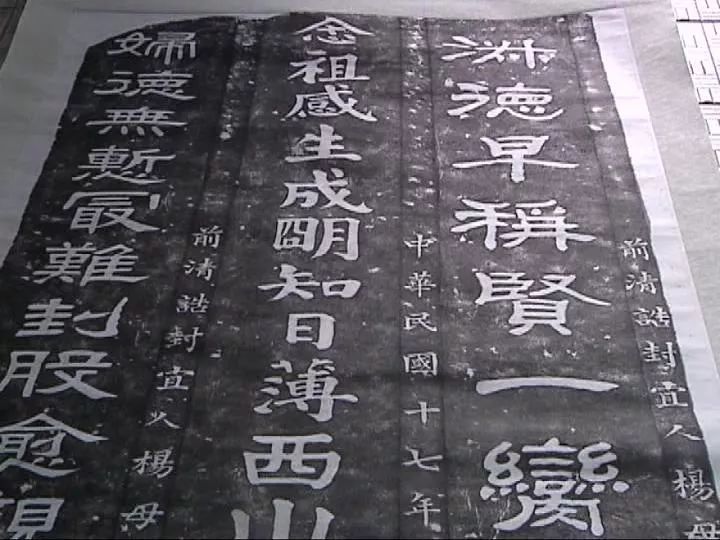 前清誥封宜人楊母
淑德早稱賢一臠
中華民國十七年
念祖感生成朙知日薄西山
前清誥封宜人楊母
婦德無慙冣難刲股愈親